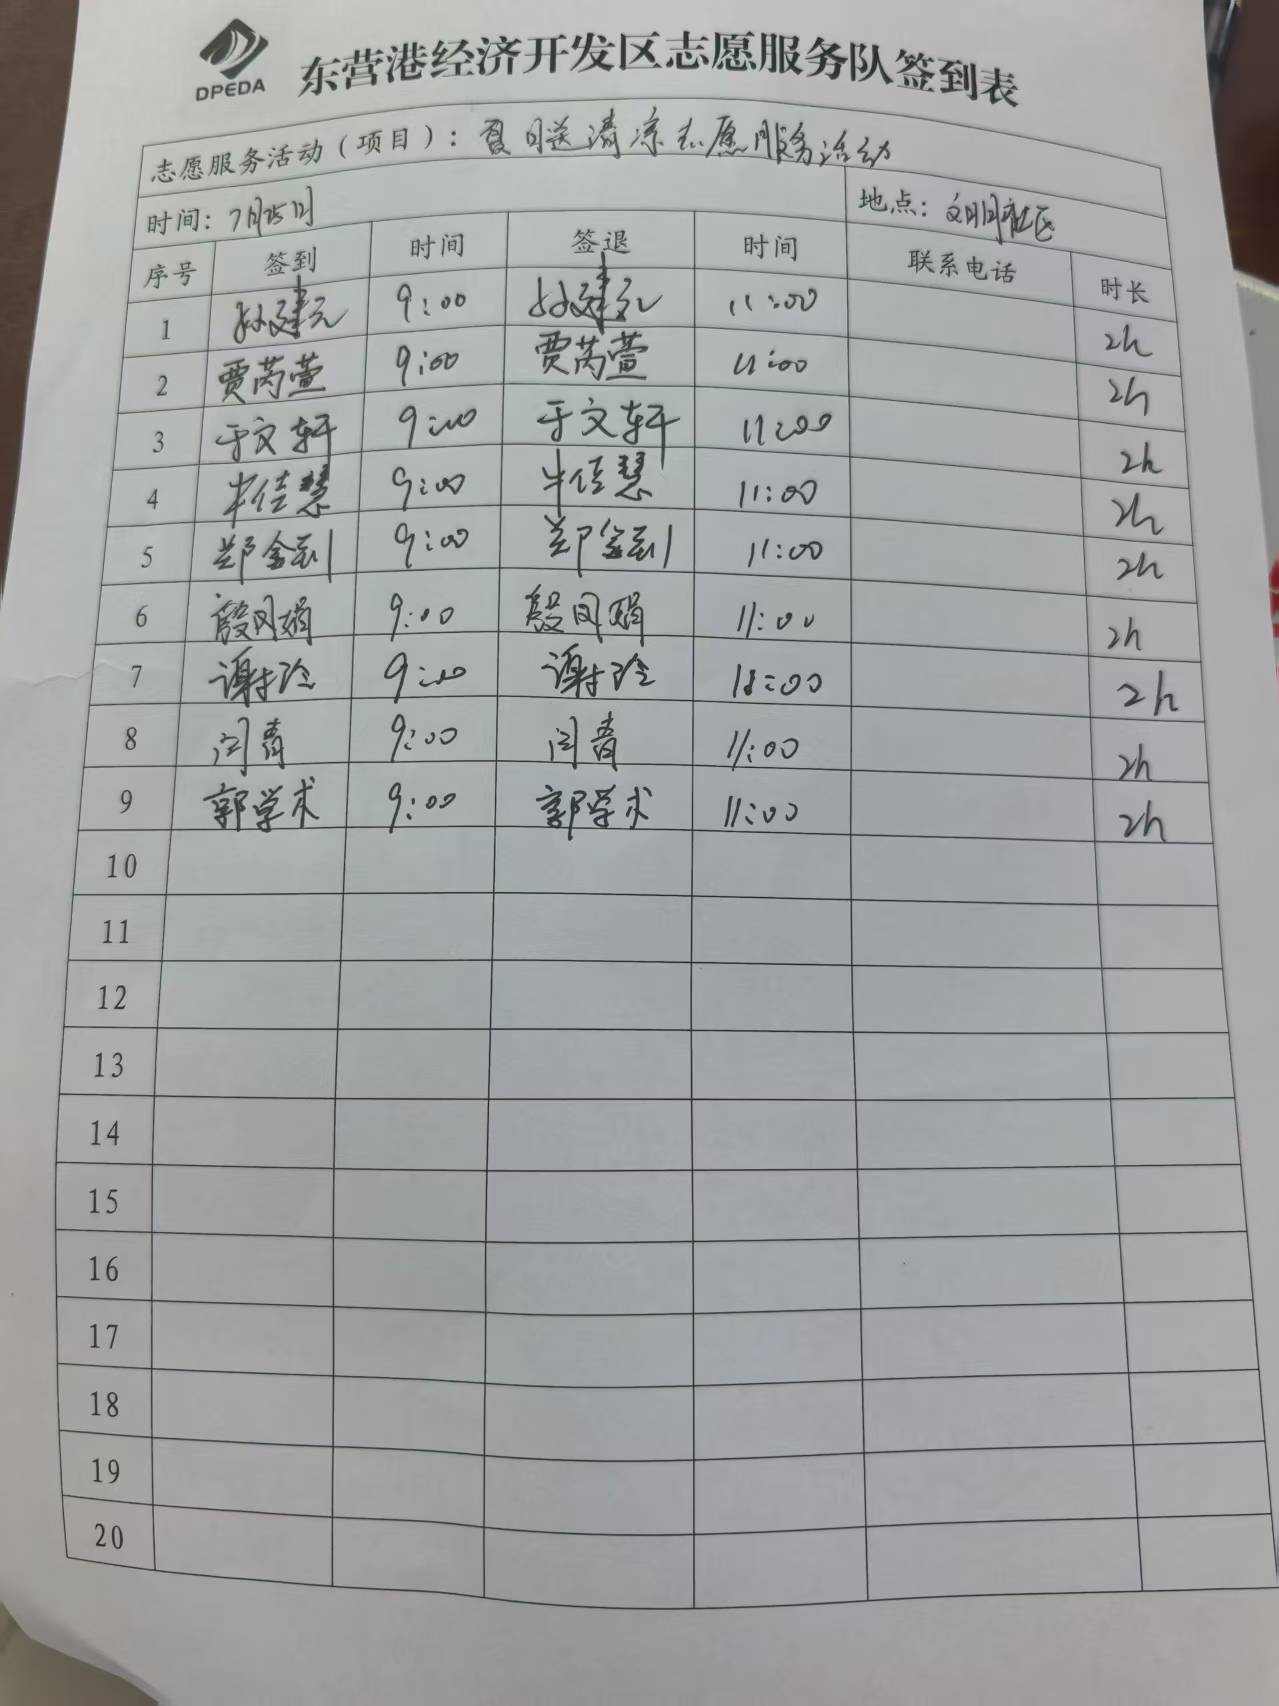 DPEDA
东营港经济开发区志愿服务队签到表
志愿服务活动（项目）：夏日送清凉志愿服务活动
时间：7月25日 地点：文明社区
序号 签到 时间 签退 时间 联系电话 时长
1 孙建元 9:00 孙建元 11:00 2h
2 贾芮萱 9:00 贾芮萱 11:00 2h
3 于文轩 9:00 于文轩 11:00 2h
4 牛佳慧 9:00 牛佳慧 11:00 2h
5 郑金钊 9:00 郑金钊 11:00 2h
6 殷风娟 9:00 殷风娟 11:00 2h
7 谢玲 9:00 谢玲 11:00 2h
8 闫青 9:00 闫青 11:00 2h
9 郭学术 9:00 郭学术 11:00 2h
10
11
12
13
14
15
16
17
18
19
20